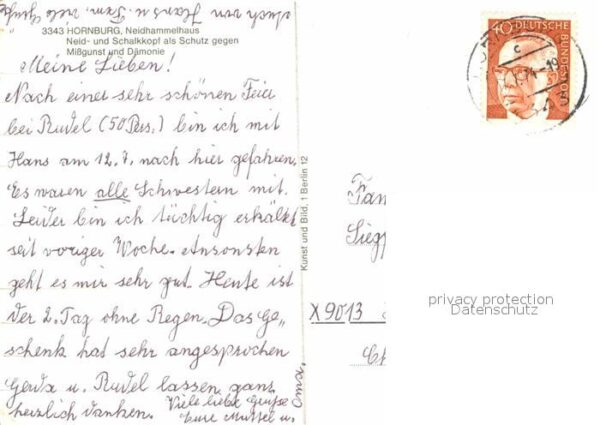 auch von Hans u. Fam. viele Grüße
3343 HORNBURG, Neidhammelhaus
Neid- und Schalkkopf als Schutz gegen
Mißgunst und Dämonie
Meine Lieben!
Nach einer sehr schönen Feier
bei Rudel (50 Pers.) bin ich mit
Hans am 12.7. nach hier gefahren.
Es waren alle Schwestern mit.
Leider bin ich tüchtig erkältet
seit voriger Woche. Ansonsten
geht es mir sehr gut. Heute ist
der 2. Tag ohne Regen. Das Ge„
schenk hat sehr angesprochen
Gerda u. Rudel lassen ganz
herzlich danken. Viele liebe Grüße
Eure Mutsel u.
Oma.
Kunst und Bild, 1 Berlin 12
40 DEUTSCHE BUNDESPOST
c
Fam
Siegf
X9013
privacy protection
Datenschutz